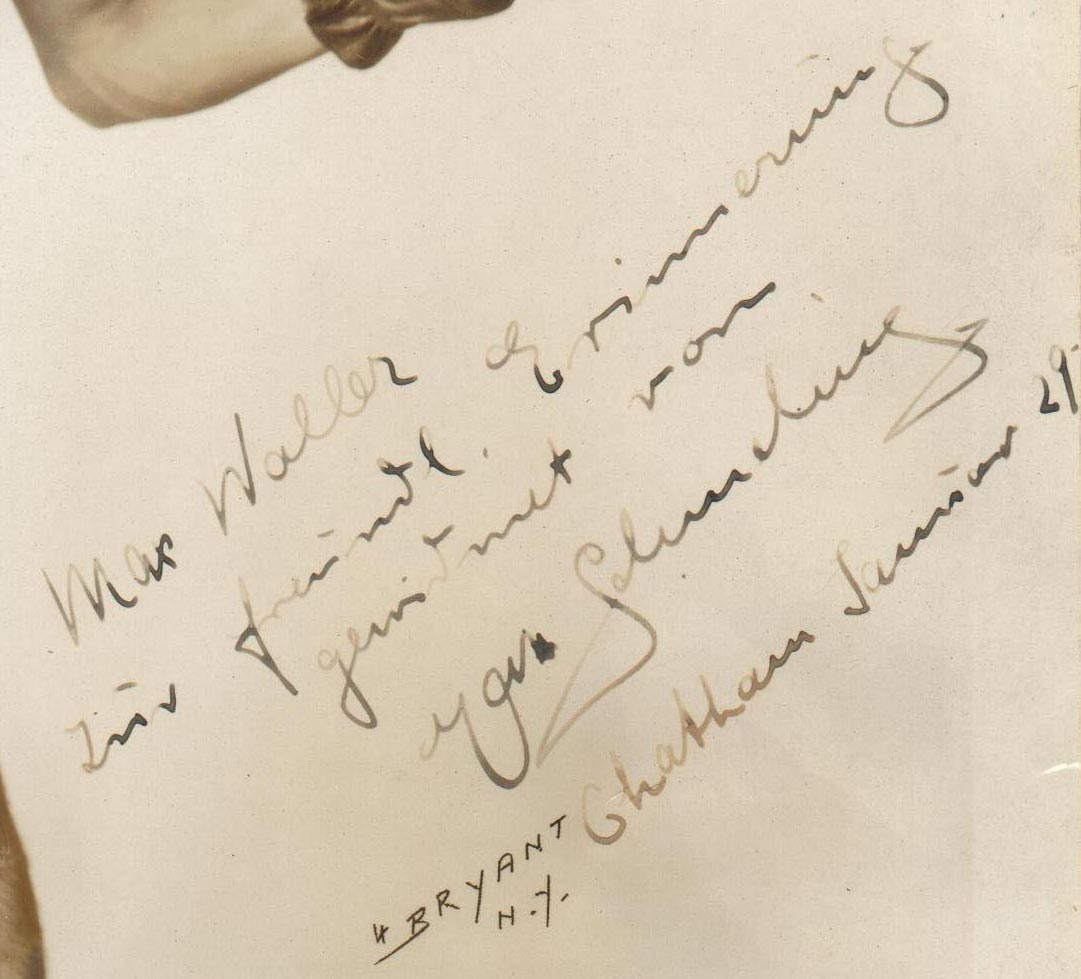 Max Waller
zur freundl. Erinnerung
gewidmet von
Max Schmeling
Chatham Januar 29
BRYANT
N.Y.